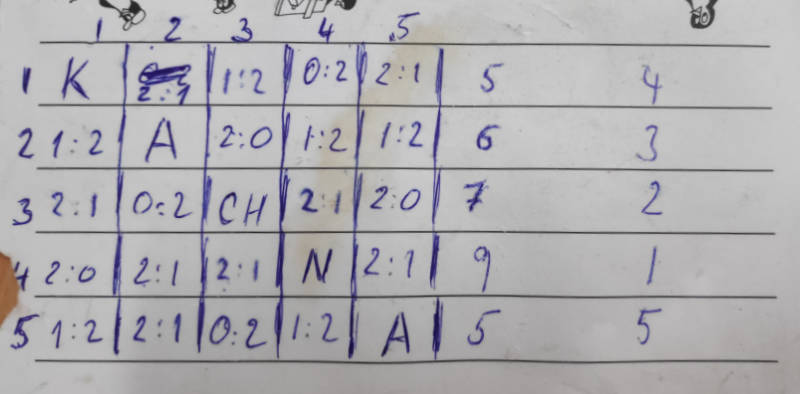 1 2 3 4 5
1 K 2:1 1:2 0:2 2:1 5 4
2 1:2 A 2:0 1:2 1:2 6 3
3 2:1 0:2 CH 2:1 2:0 7 2
4 2:0 2:1 2:1 N 2:1 9 1
5 1:2 2:1 0:2 1:2 A 5 5